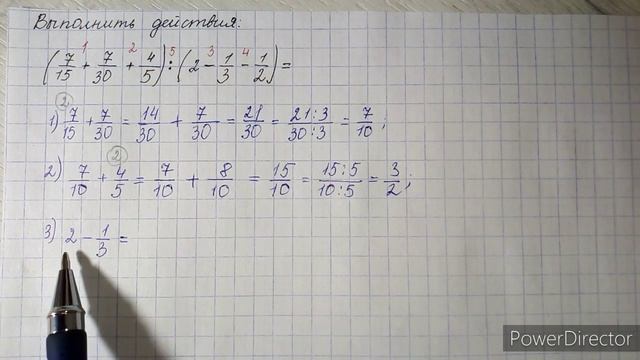 Выполнить действия:
(7/15 +¹ 7/30 +² 4/5) :⁵ (2 −³ 1/3 −⁴ 1/2) =
1) 7/15 ② + 7/30 = 14/30 + 7/30 = 21/30 = 21:3/30:3 = 7/10;
2) 7/10 + 4/5 ② = 7/10 + 8/10 = 15/10 = 15:5/10:5 = 3/2;
3) 2 − 1/3 =
PowerDirector